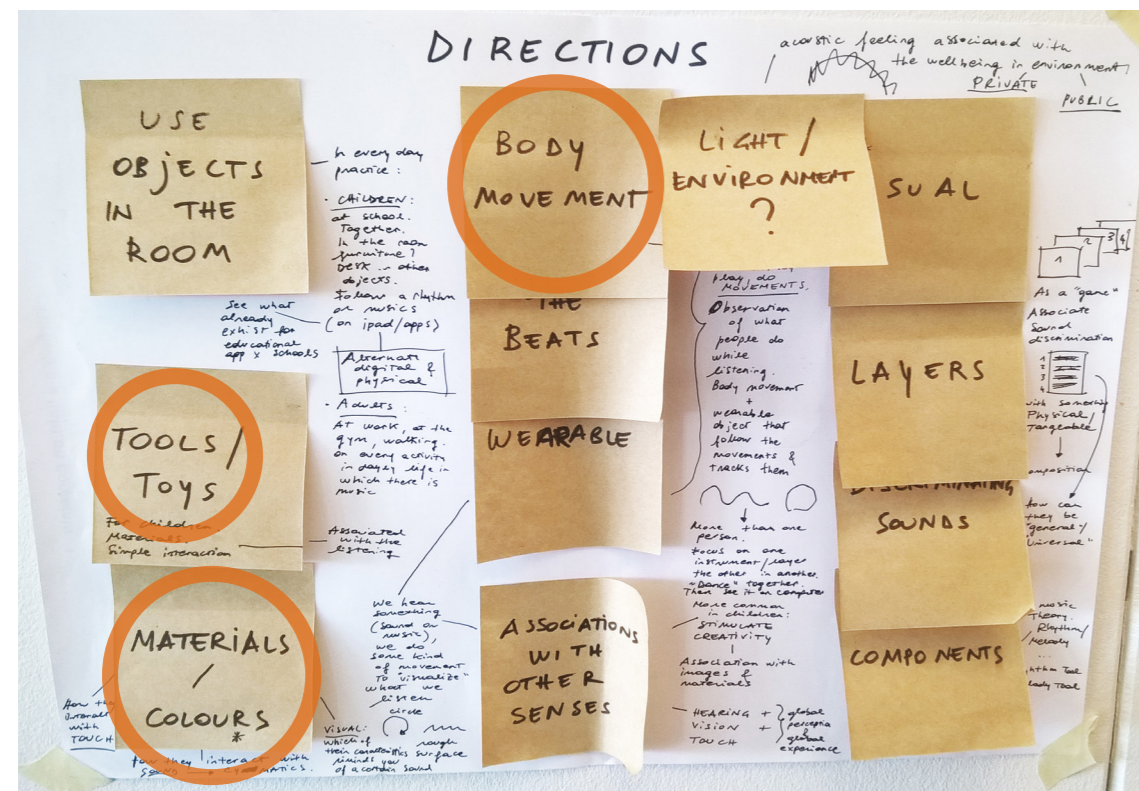 DIRECTIONS
acoustic feeling associated with
the wellbeing in environment
PRIVATE
PUBLIC
USE
OBJECTS
IN THE
ROOM
In every day
practice:
• CHILDREN:
at school.
Together.
In the room
furniture?
DESK other
objects.
Follow a rhythm
or musics
(on ipad/apps)
See what
already
exhist for
educational
app x schools
Alternate
digital &
physical
• Adults:
At work, at the
gym, walking.
on every activity
in dayly life in
which there is
music
TOOLS/
Toys
For children
Materials.
Simple interaction
Associated
with the
listening
MATERIALS
/
COLOURS
*
How they
interact
with
TOUCH
how they interact with
VISUAL:
which of
their caratteristics
reminds you
of a certain sound
rough
surface
We hear
something
(sound or
music),
we do
some kind
of movement
to "visualize"
what we
listen
circle
BODY
MOVEMENT
THE
BEATS
WEARABLE
ASSOCIATIONS
WITH
OTHER
SENSES
LiGHT/
ENVIRONMENT
?
play, do
MOVEMENTS.
Observation
of what
people do
while
listening.
Body movement
+
wearable
object that
follow the
movements &
tracks them
More than one
person.
focus on one
instrument/layer
the other in another.
"Dance" together.
Then see it on computer
More common
in children:
STIMULATE
CREATIVITY
Association with
images &
materials
HEARING +
VISION +
TOUCH
global
perception
global
experience
SUAL
LAYERS
DISCRIMINATING
SOUNDS
COMPONENTS
1 2 3 4
As a "game"
Associate
Sound
discrimination
1
2
3
4
with something
Physical/
Tangeable
omposition
How can
they be
"general"/
"Universal"
music
Theory.
Rhythm/
Melody
...
hthm Tool
lody Tool